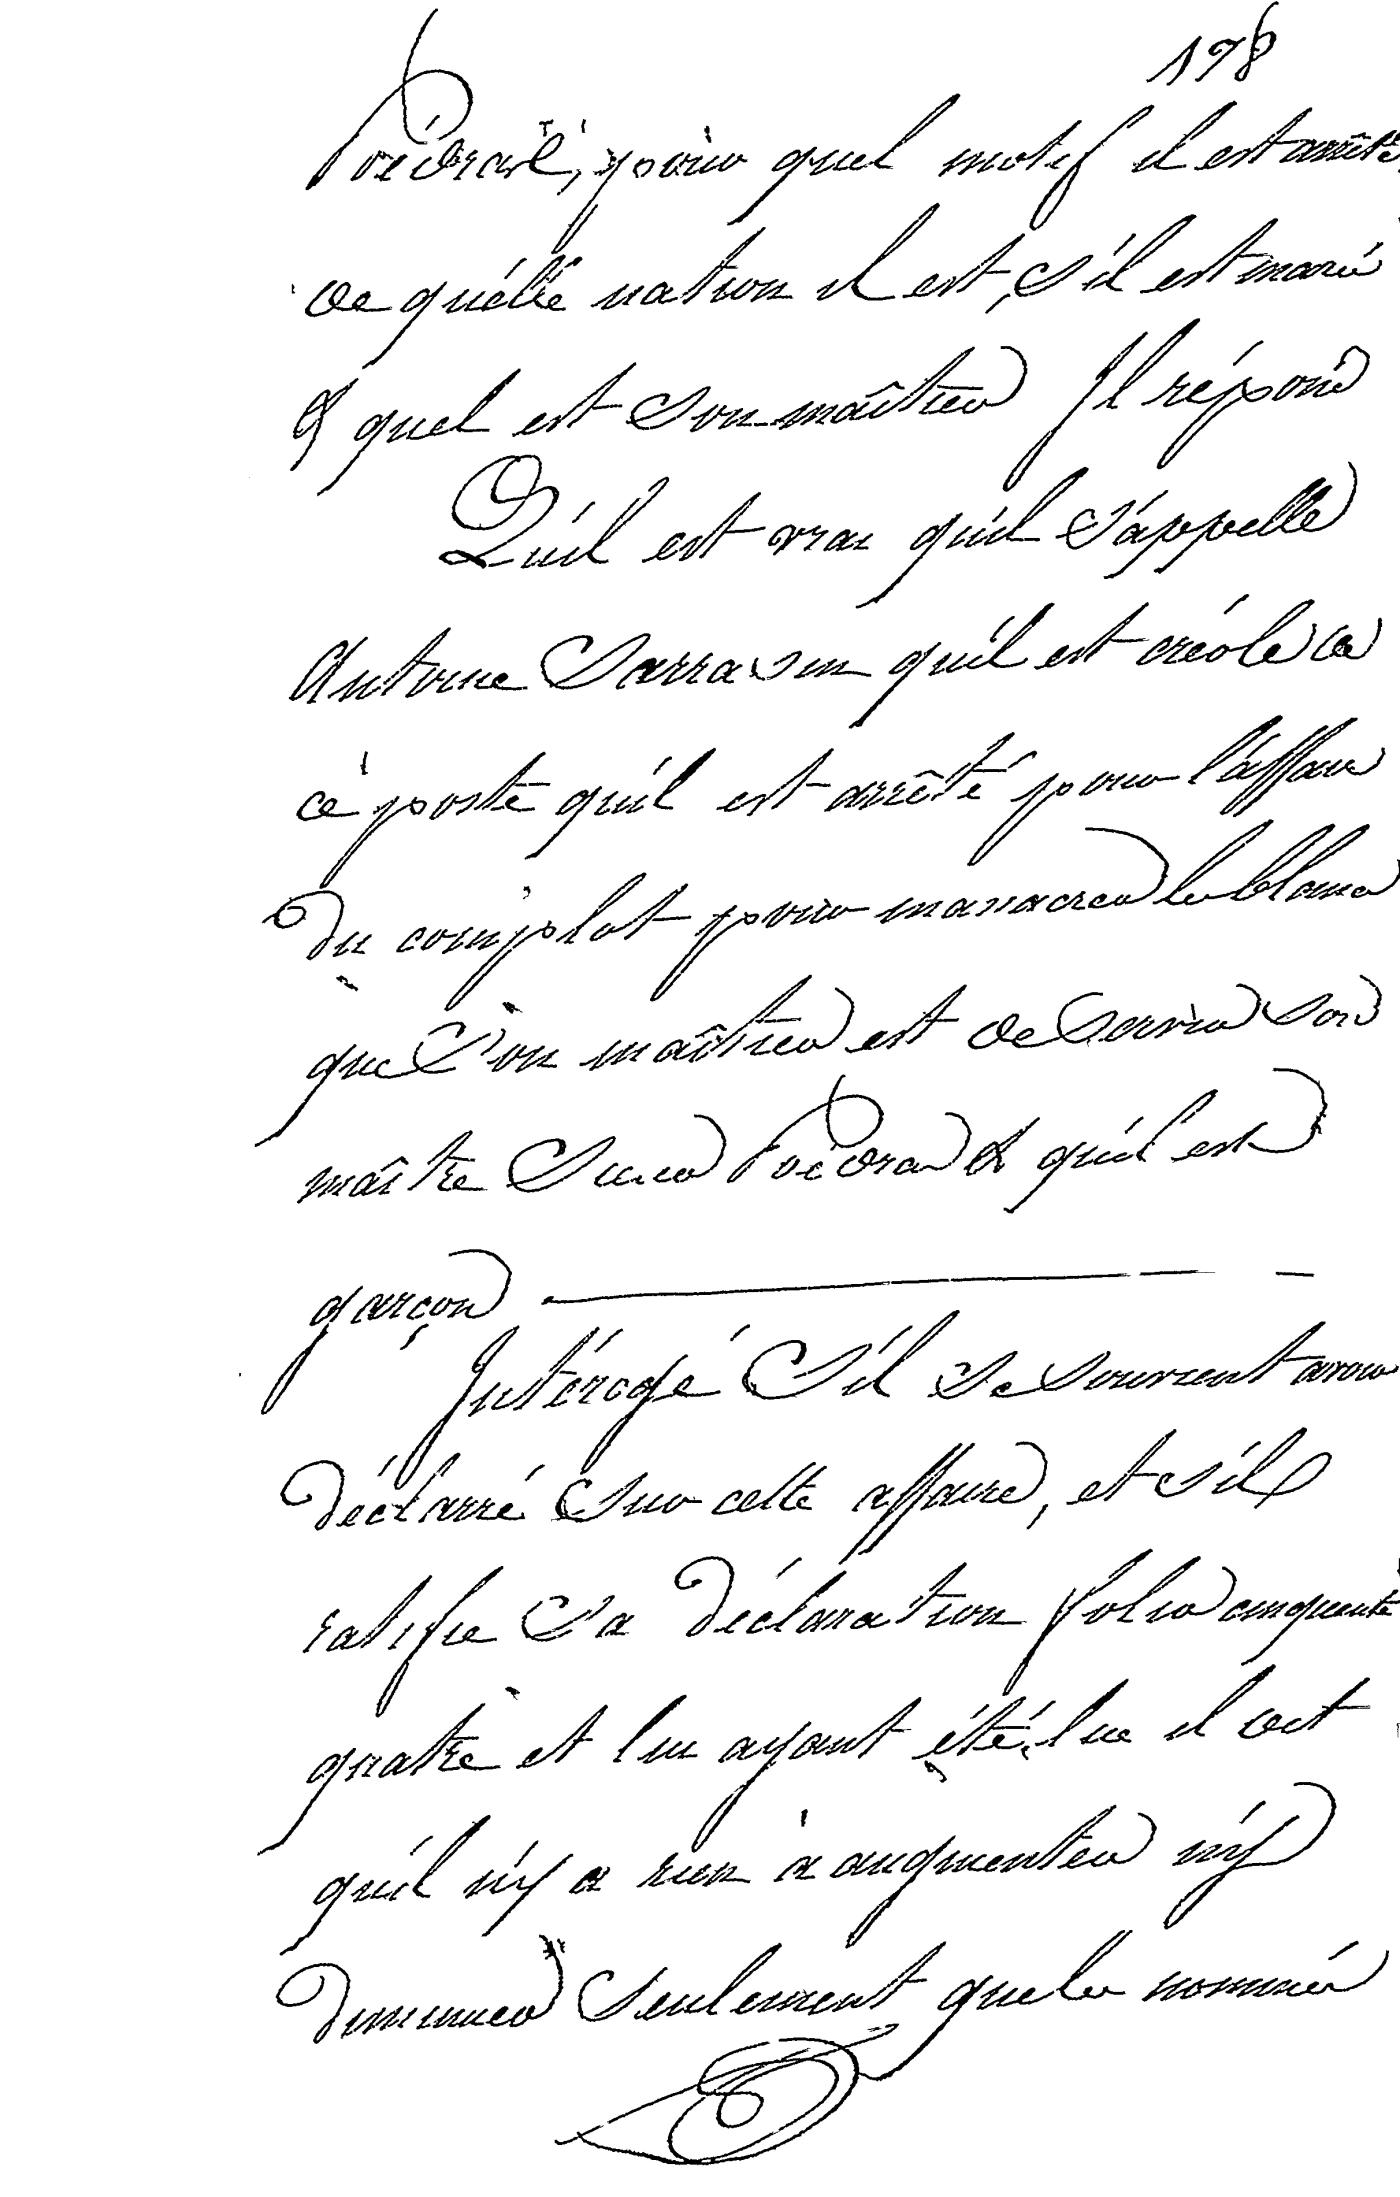 178
Poidras, pour quel motif il est arrêté
de quélle nation il est, s'il est marié
& quel est son maîtrea Il répond
Qu'il est vrai qu'il s'appelle
Antoine Sarrasin qu'il est créole de
cé posté qu'il est arrêté pour l'affaire
du complot pour massacrer les blancs
que son maîtrea est de Servir son
maître Sieur Poidras & qu'il est
garçon
Intérogé s'il se souvient avoir
déclarré sur cette affaire, et s'il
ratifie sa déclaration folio cinquente
quatre et lui ayant été lue il dit
qu'il n'y a rien à augmenter n'y
diminuer seulement que les nommés